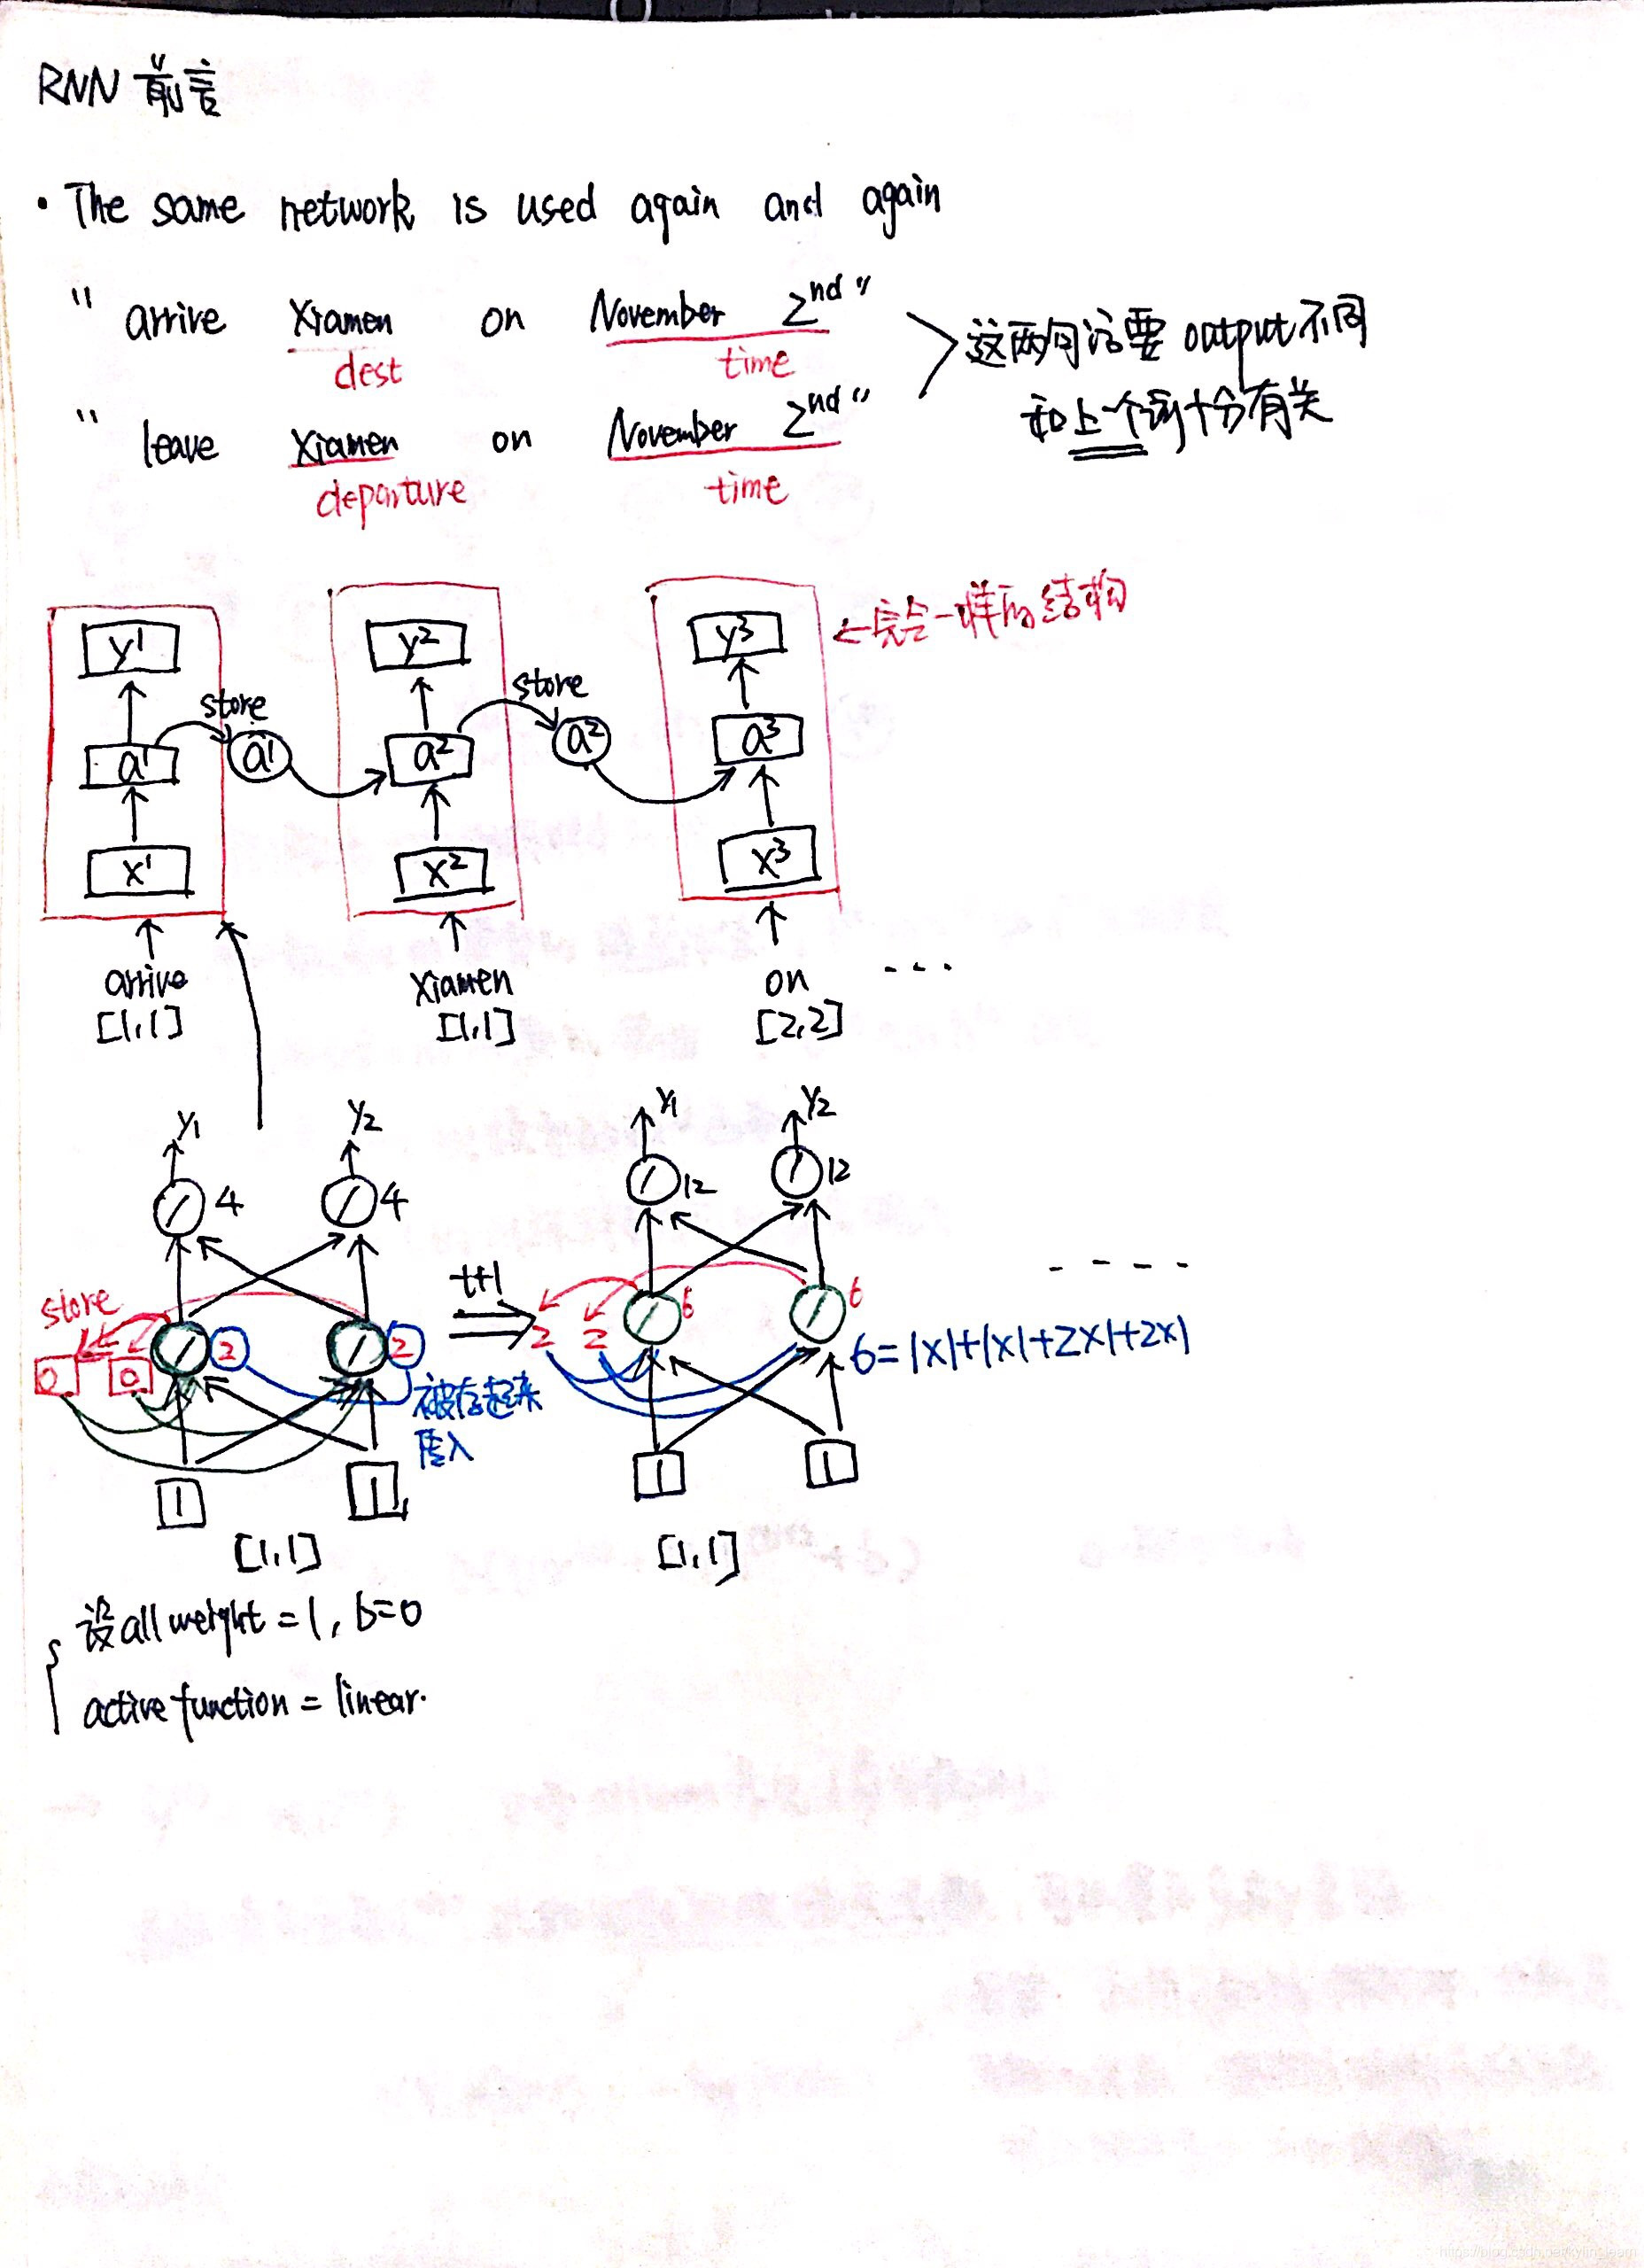 RNN 前言
• The same network is used again and again
" arrive Xiamen on November 2nd "
dest time
" leave Xiamen on November 2nd "
departure time
这两句话要 output 不同
和上一个词十分有关
←完全一样的结构
y¹ y² y³
store store
a¹ a¹ a² a² a³
x¹ x² x³
arrive Xiamen on ...
[1,1] [1,1] [2,2]
y₁ y₂ y₁ y₂
4 4 12 12
store t+1 ----
0 0 2 2 2 2 6 6
6=1×1+1×1+2×1+2×1
被存起来
传入
1 1 1 1
[1,1] [1,1]
设 all weight = 1, b=0
active function = linear.